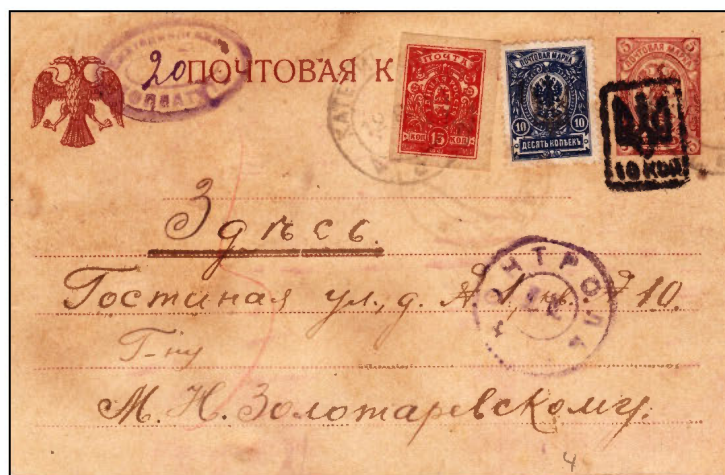 20 ПОЧТОВАЯ К
ПОЧТА
КОП 15 КОП
ПОЧТОВАЯ МАРКА
10 10
ДЕСЯТЬ КОПѢЕКЪ
ПОЧТОВАЯ МАРКА
10 коп
КАТЕ
Здѣсь.
КОНТРОЛЬ
Гостиная ул., д. № 1, кв. № 10.
Г-ну
М. Н. Золотаревскому.
4